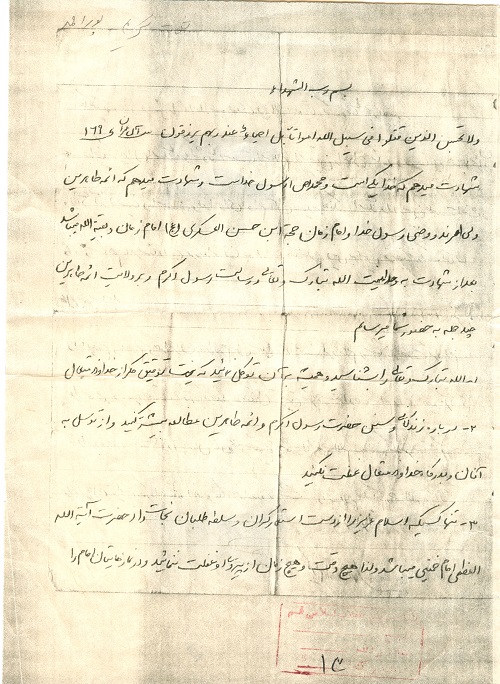 بسم رب الشهداء
ولا تحسبن الذین قتلوا فی سبیل الله امواتا بل احیاء عند ربهم یرزقون آل عمران ۱۶۹
شهادت میدهم که خدا یکی است و محمد (ص) رسول خداست و شهادت میدهم که ائمه طاهرین
ولی امر بعد و وصی رسول خدا و امام زمان حجة ابن حسن العسکری (عج) امام زمان و بقیة الله میباشد
بعد از شهادت به وحدانیت الله تبارک و تعالی و رسالت رسول اکرم و بر ولایت ائمه طاهرین
چند جمله به حضور شما میرسانم
۱- الله تبارک و تعالی را بشناسید و همیشه به آن توکل نمائید که توفیق مگر از خداوند متعال
۲- درباره زندگانی و سنن حضرت رسول اکرم و ائمه طاهرین مطالعه بیشتر کنید و از توسل به
آنان و درگاه خداوند متعال غفلت نکنید
۳- تنها کسیکه اسلام عزیز را از دست استعمارگران و سلطه طلبان نجات داد حضرت آیة الله
العظمی امام خمینی میباشد ولذا هیچ وقت و هیچ زمان از پیروی او غفلت ننمائید و در نمازهایتان امام را